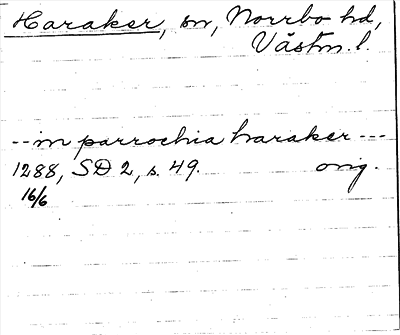 Haraker, sn, Norrbo hd,
Västm. l.
--in parrochia haraker---
1288, SD 2, s. 49. orig.
16/6